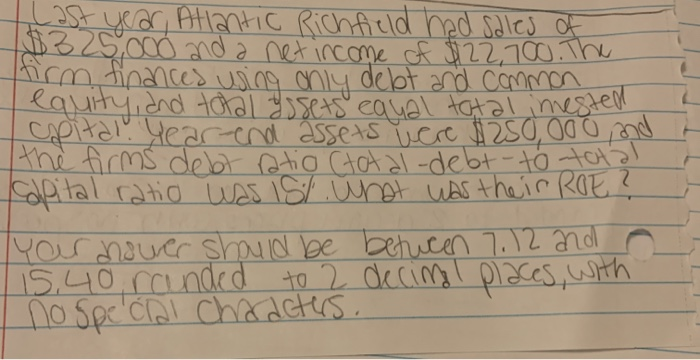 Last year, Atlantic Richfield had sales of
$325,000 and a net income of $22,700. The
firm finances using only debt and common
equity, and total assets equal total invested
capital. Year-end assets were $250,000, and
the firms debt ratio (total-debt-to-total
capital ratio was 15%. What was their ROE?
your answer should be between 7.12 and
15.40, rounded to 2 decimal places, with
no special characters.